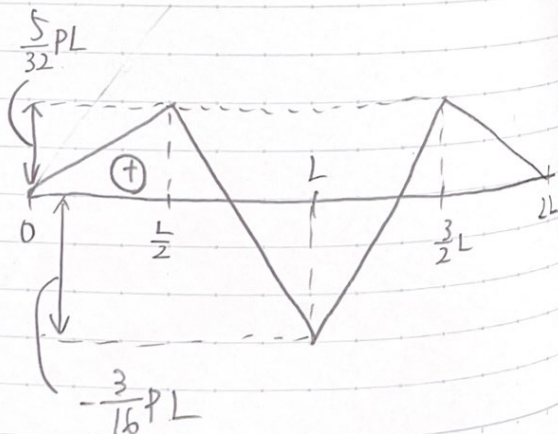 5/32 PL
+
L
0
L/2
3/2 L
2L
-3/16 PL